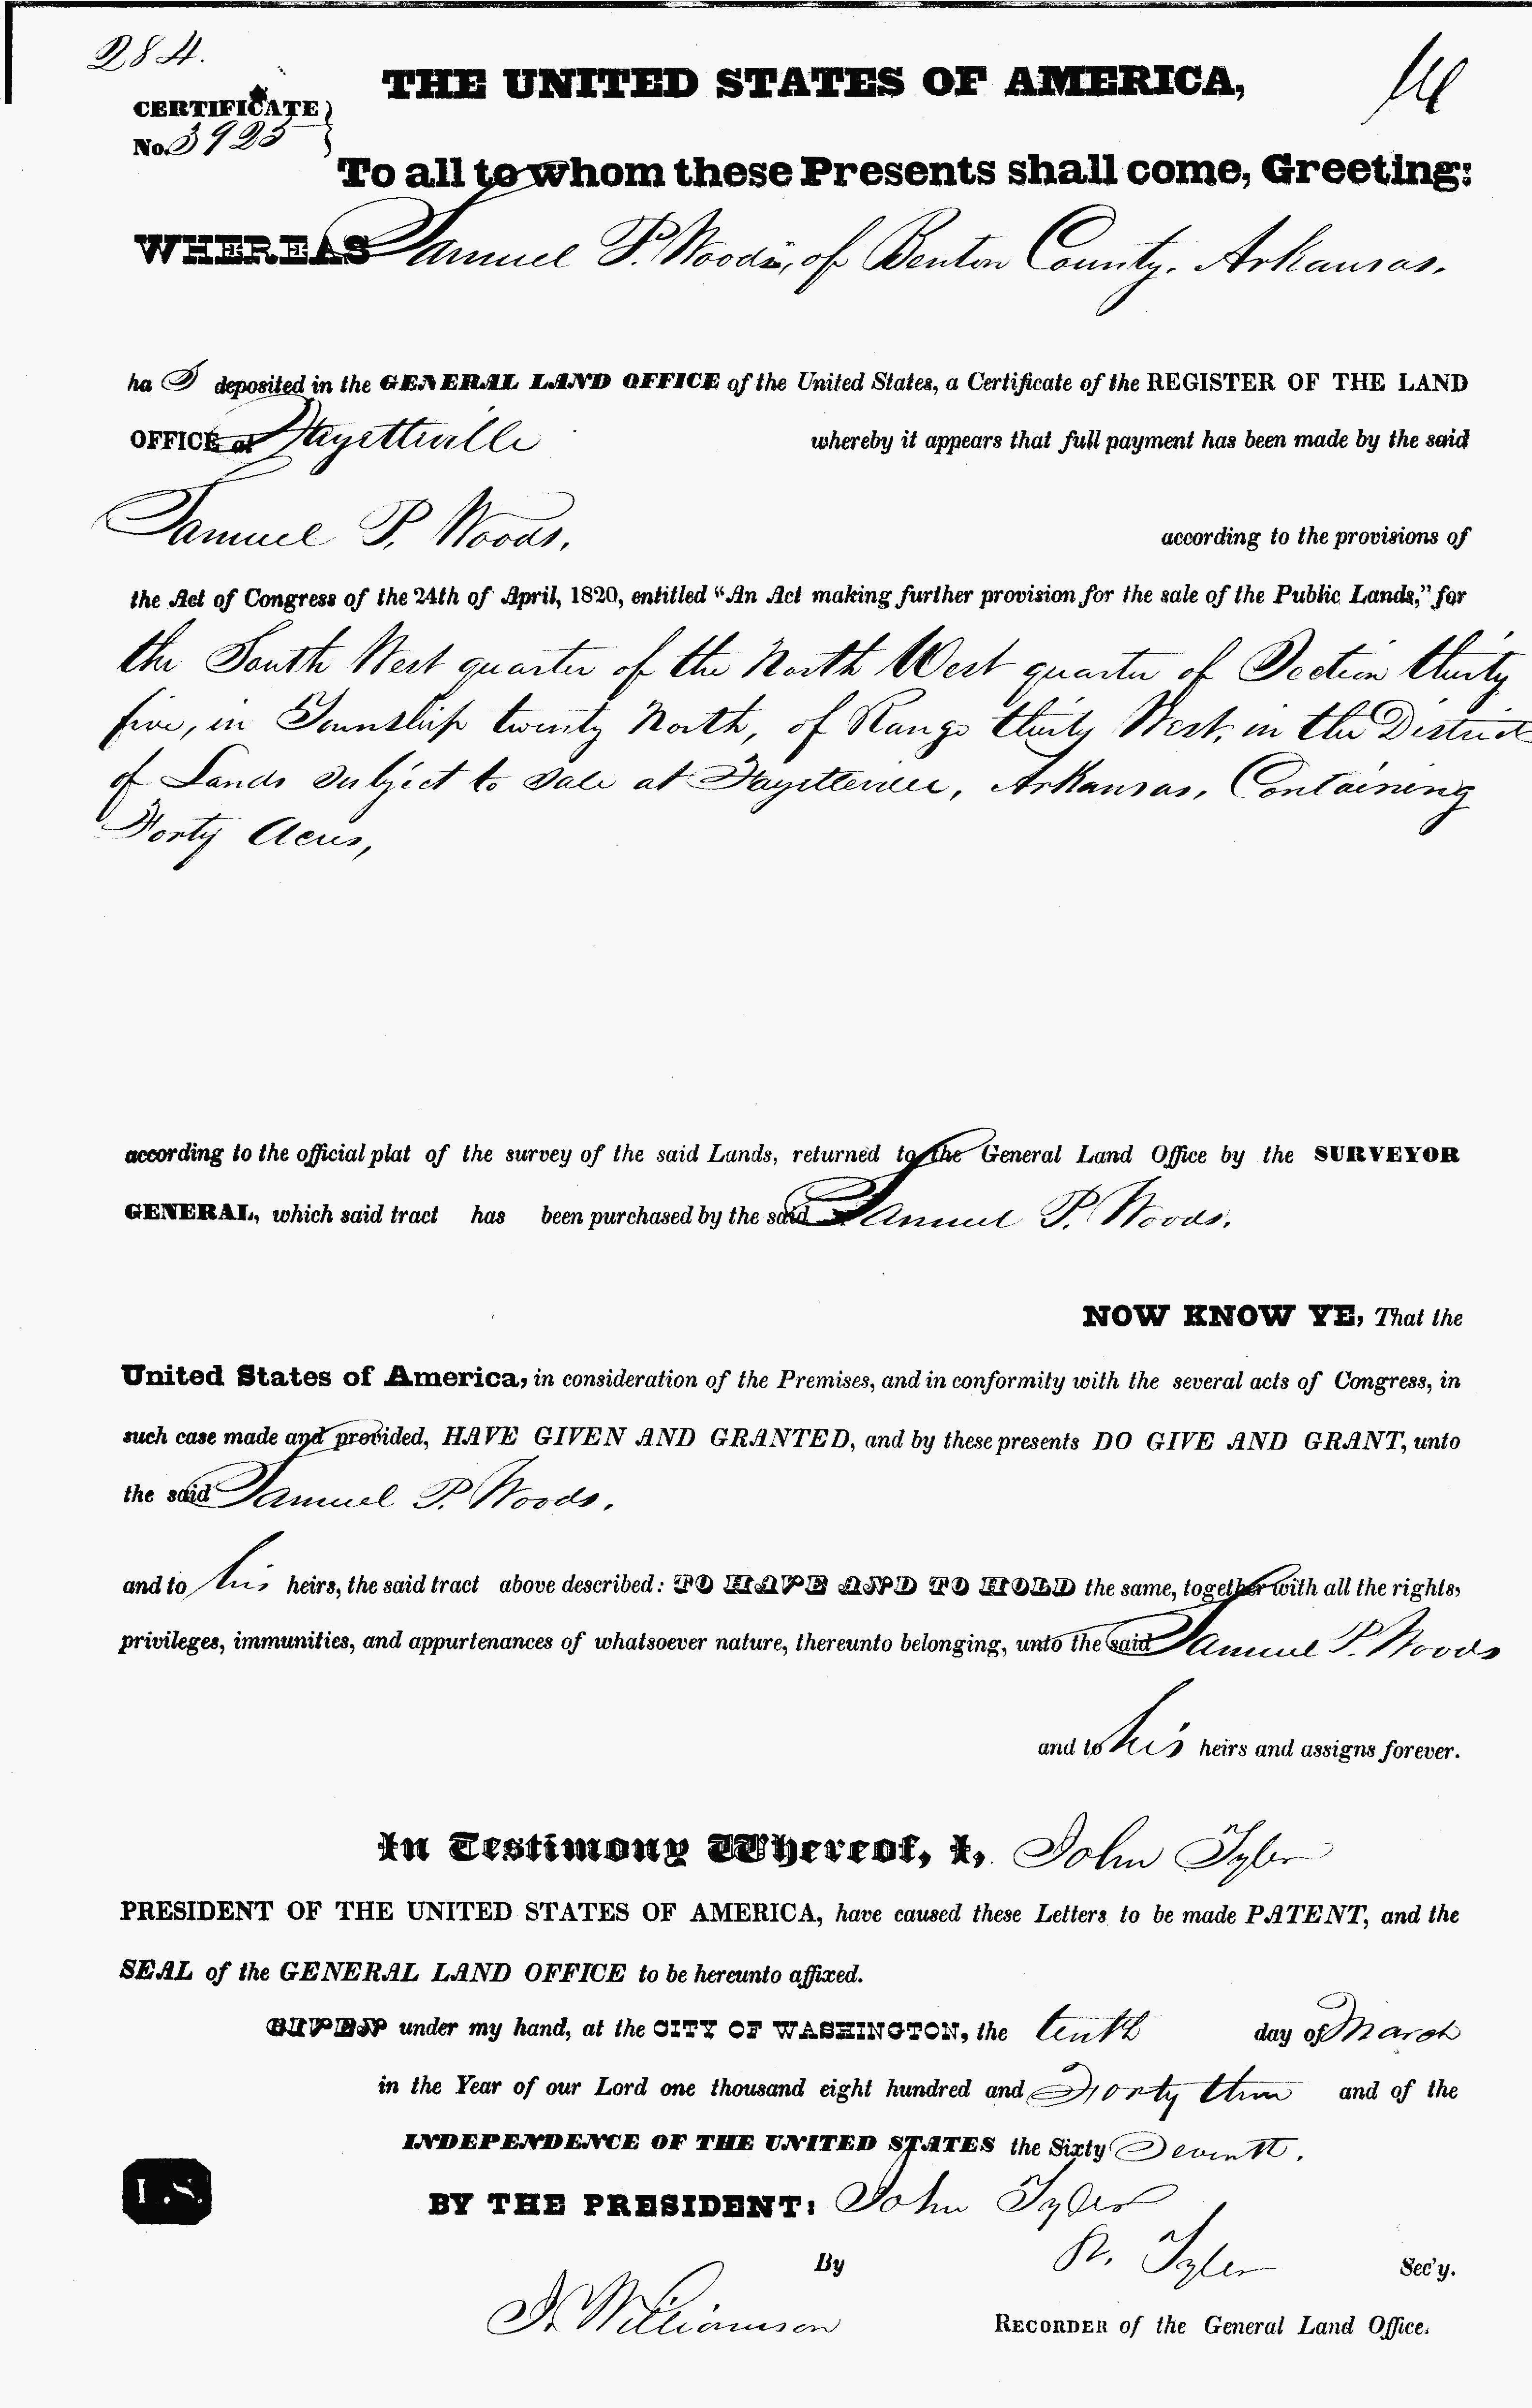 284.
THE UNITED STATES OF AMERICA,
CERTIFICATE
No. 3923
To all to whom these Presents shall come, Greeting:
WHEREAS Samuel P. Woods, of Benton County, Arkansas,
ha s deposited in the GENERAL LAND OFFICE of the United States, a Certificate of the REGISTER OF THE LAND
OFFICE at Fayetteville whereby it appears that full payment has been made by the said
Samuel P. Woods, according to the provisions of
the Act of Congress of the 24th of April, 1820, entitled "An Act making further provision for the sale of the Public Lands," for
the South West quarter of the North West quarter of Section thirty
five, in Township twenty North, of Range thirty West, in the District
of Lands subject to sale at Fayetteville, Arkansas, Containing
Forty Acres,
according to the official plat of the survey of the said Lands, returned to the General Land Office by the SURVEYOR
GENERAL, which said tract has been purchased by the said Samuel P. Woods.
NOW KNOW YE, That the
United States of America, in consideration of the Premises, and in conformity with the several acts of Congress, in
such case made and provided, HAVE GIVEN AND GRANTED, and by these presents DO GIVE AND GRANT, unto
the said Samuel P. Woods.
and to his heirs, the said tract above described: TO HAVE AND TO HOLD the same, together with all the rights,
privileges, immunities, and appurtenances of whatsoever nature, thereunto belonging, unto the said Samuel P. Woods
and to his heirs and assigns forever.
In Testimony Whereof, I, John Tyler
PRESIDENT OF THE UNITED STATES OF AMERICA, have caused these Letters to be made PATENT, and the
SEAL of the GENERAL LAND OFFICE to be hereunto affixed.
GIVEN under my hand, at the CITY OF WASHINGTON, the tenth day of March
in the Year of our Lord one thousand eight hundred and Forty three and of the
INDEPENDENCE OF THE UNITED STATES the Sixty Seventh.
L.S.
BY THE PRESIDENT: John Tyler
By R. Tyler Sec'y.
J. Williamson RECORDER of the General Land Office.